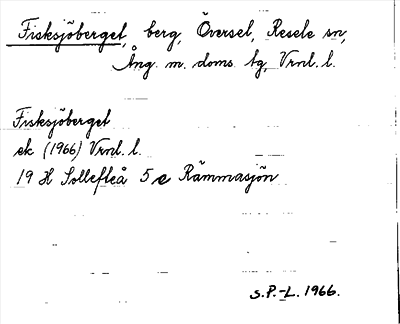 Fisksjöberget, berg, Översel, Resele sn,
Ång. m. doms. tg, Vrnl. l.
Fisksjöberget
ek (1966) Vrnl. l.
19 H Sollefteå 5 e Rämmasjön
S.P.-L. 1966.